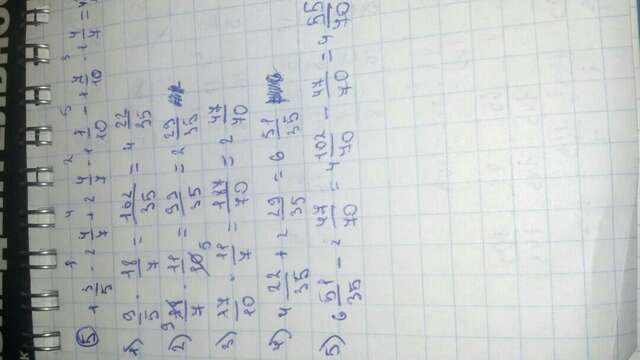 ⑤ 1 3/5 · 2 4/7 + 2 4/7 · 1 1/10 - 1 7/10 · 1 4/7 = 4
1) 9/5 · 18/7 = 162/35 = 4 22/35
2) 9/7 · 11/5 = 99/35 = 2 29/35
3) 17/10 · 11/7 = 187/70 = 2 47/70
4) 4 22/35 + 2 29/35 = 6 51/35
5) 6 51/35 - 2 47/70 = 4 102/70 - 47/70 = 4 55/70